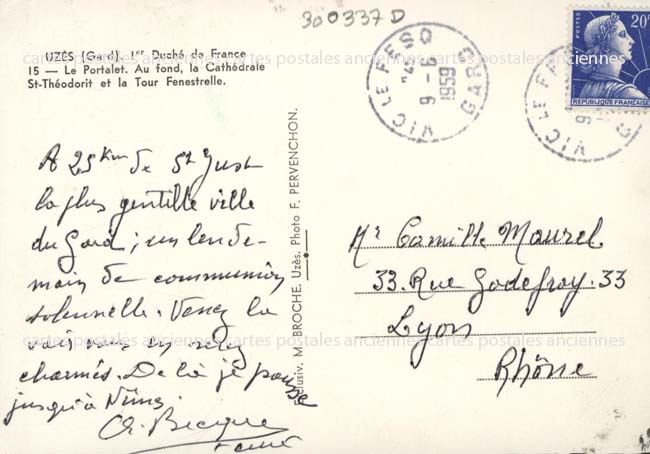 300337D
UZÈS (Gard). 1er Duché de France
15 — Le Portalet. Au fond, la Cathédrale
St-Théodorit et la Tour Fenestrelle.
cartes postales anciennes cartes postales anciennes cartes postales anciennes
VIC LE FESQ
9 - 6
1959
GARD
VIC LE FESQ
20F
REPUBLIQUE FRANÇAISE
A 25 Km de St Just
la plus gentille ville
du Gard ; un lende-
main de communion
solennelle. Venez la
voir vous en serez
charmés. De là je pousse
jusqu'à Nîmes
Exclusiv. M. BROCHE, Uzès. Photo F. PERVENCHON.
Mr Camille Maurel
33. Rue Godefroy. 33
Lyon
Rhône
cartes postales anciennes cartes postales anciennes cartes postales anciennes